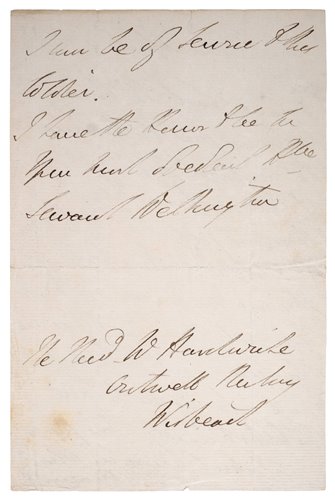 I can be of Service to this
Soldier.
I have the Honor to be Sir
Your most obedient Hble
Servant Wellington
The Revd W Hardwicke
Outwell Rectory
Wisbeach